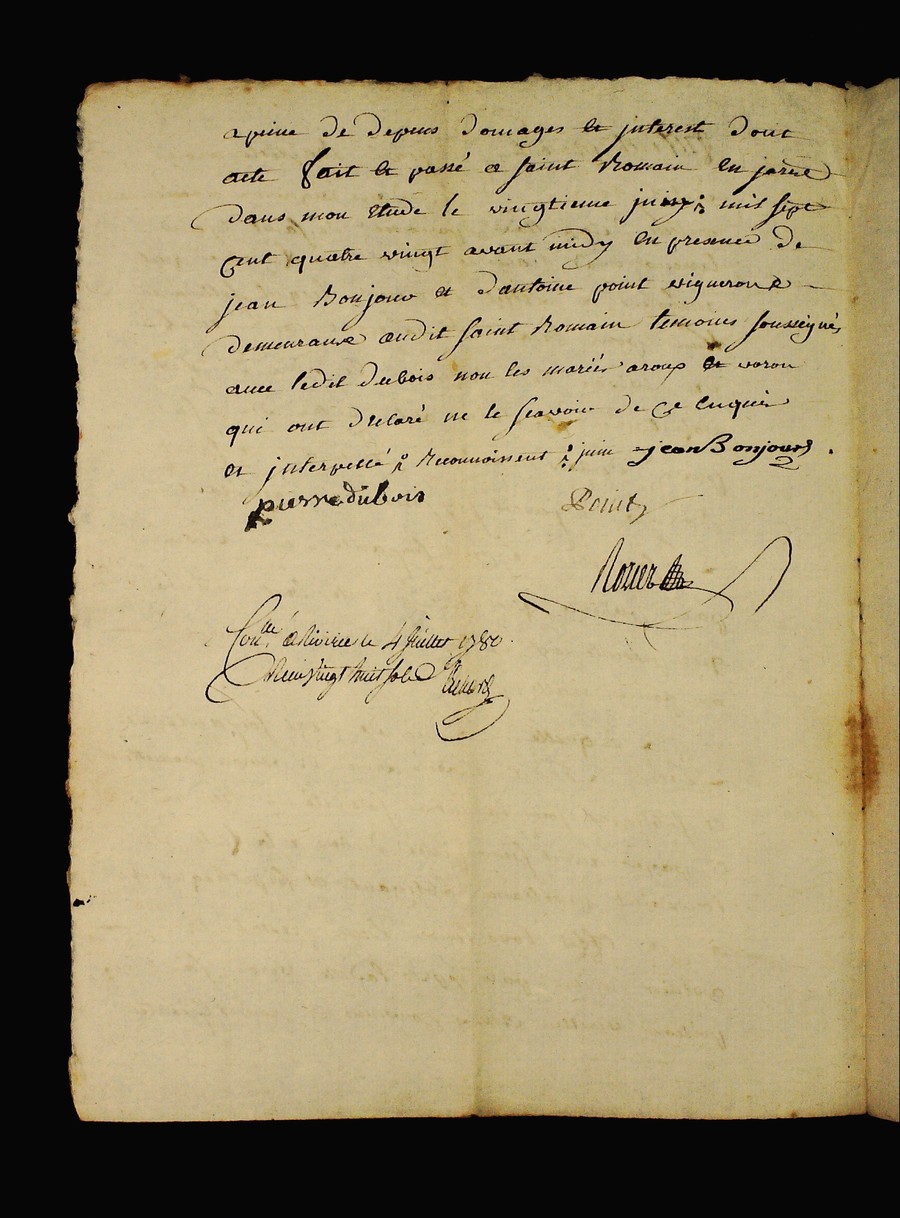 a peine de depens domages et interest dont
acte fait et passé a saint Romain en jarret
dans mon etude le vingtieme juin mil sept
cent quatre vingt avant midy en presence de
jean Bonjour et d'antoine point vignerons
demeurants audit saint Romain temoins soussignés
avec ledit dubois non les mariés aroux et voron
qui ont declaré ne le scavoir de ce enquis
et interpellé reconnoissent juin jean Bonjour
pierre dubois Point
Rozier
Con.lle a Rivirie le 4 Juillet 1780.
Reçu vingt huit sols